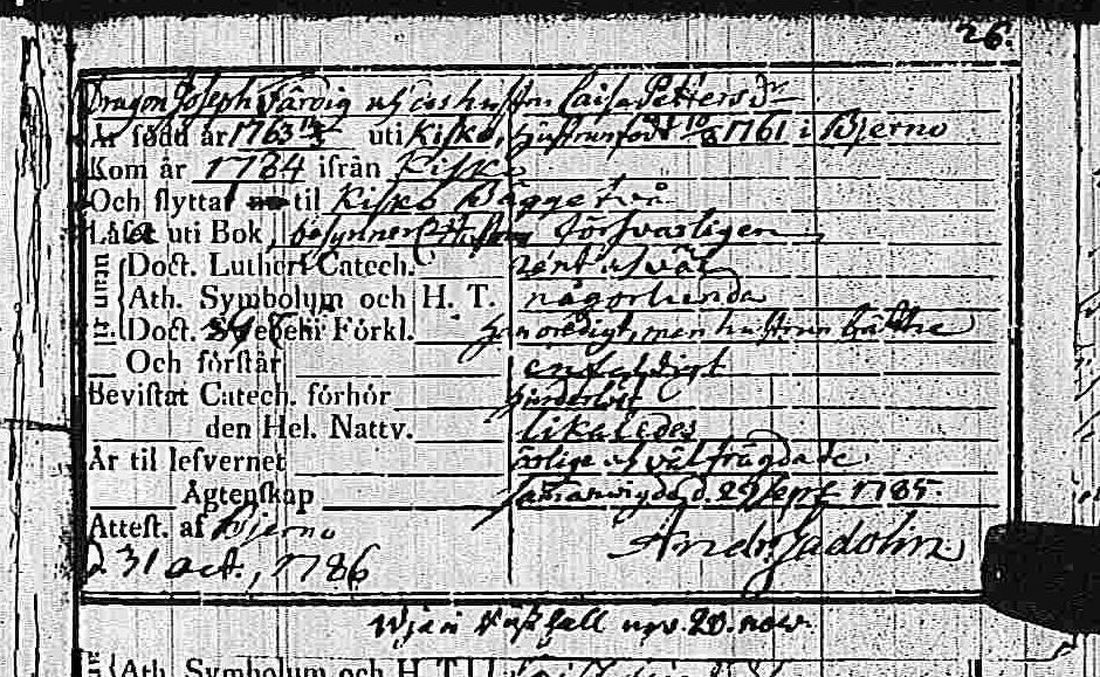 26.
Dragon Joseph Färdig och dess hustru Caisa Petters Dr
Är född år 1763 uti Kisko, hustrun född 1761 i Bjerno
Kom år 1784 ifrån Kisko
Och flyttar til Kisko Bägge två
Läsa uti Bok, hustrun försvarligen
utan Doct. Lutheri Catech. rent och väl
Ath. Symbolum och H. T. någorlunda
Doct. Förkl. han oredigt, men hustrun bättre
Och förstår enfaldigt
Bevistat Catech. förhör
den Hel. Nattv. likaledes
Är til lefvernet ärlige och väl frägdade
Ägtenskap d. 29 Sept. 1785.
Attest. af Bjerno
d 31 oct., 1786 And. Gadolin
20. nov.
Ath. Symbolum och H. T.